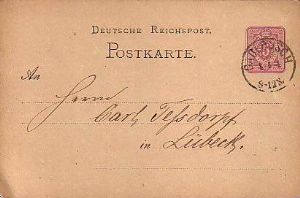 DEUTSCHE REICHSPOST.
POSTKARTE.
An
Herrn
Carl Tessdorpf
in Lübeck.
8-12V